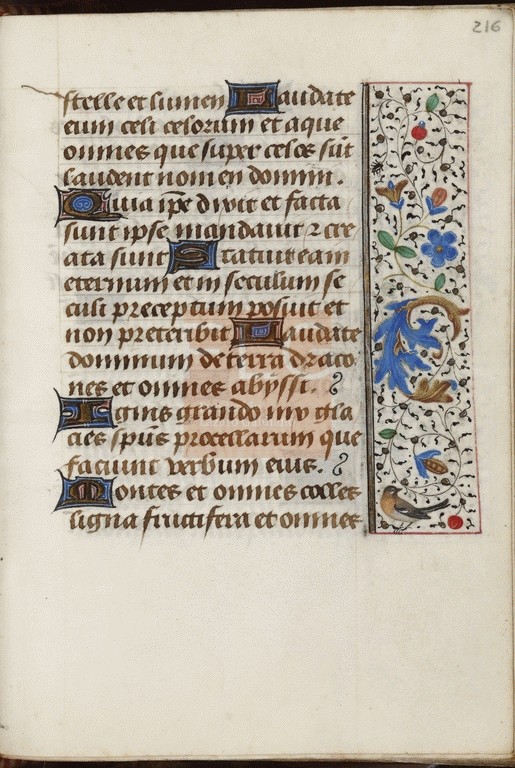 216
stelle et lumen Laudate
eum celi celorum et aque
omnes que super celos sūt
laudent nomen domini.
Quia ip̄e dixit et facta
sunt ipse mandauit ⁊ cre
ata sunt Statuit eam
eternum et in seculum se
culi preceptum posuit et
non preteribit Laudate
dominum de terra draco
nes et omnes abyssi.
Ignis grando nix gla
cies sp̄us procellarum que
faciunt verbum eius.
Montes et omnes colles
ligna fructifera et omnes